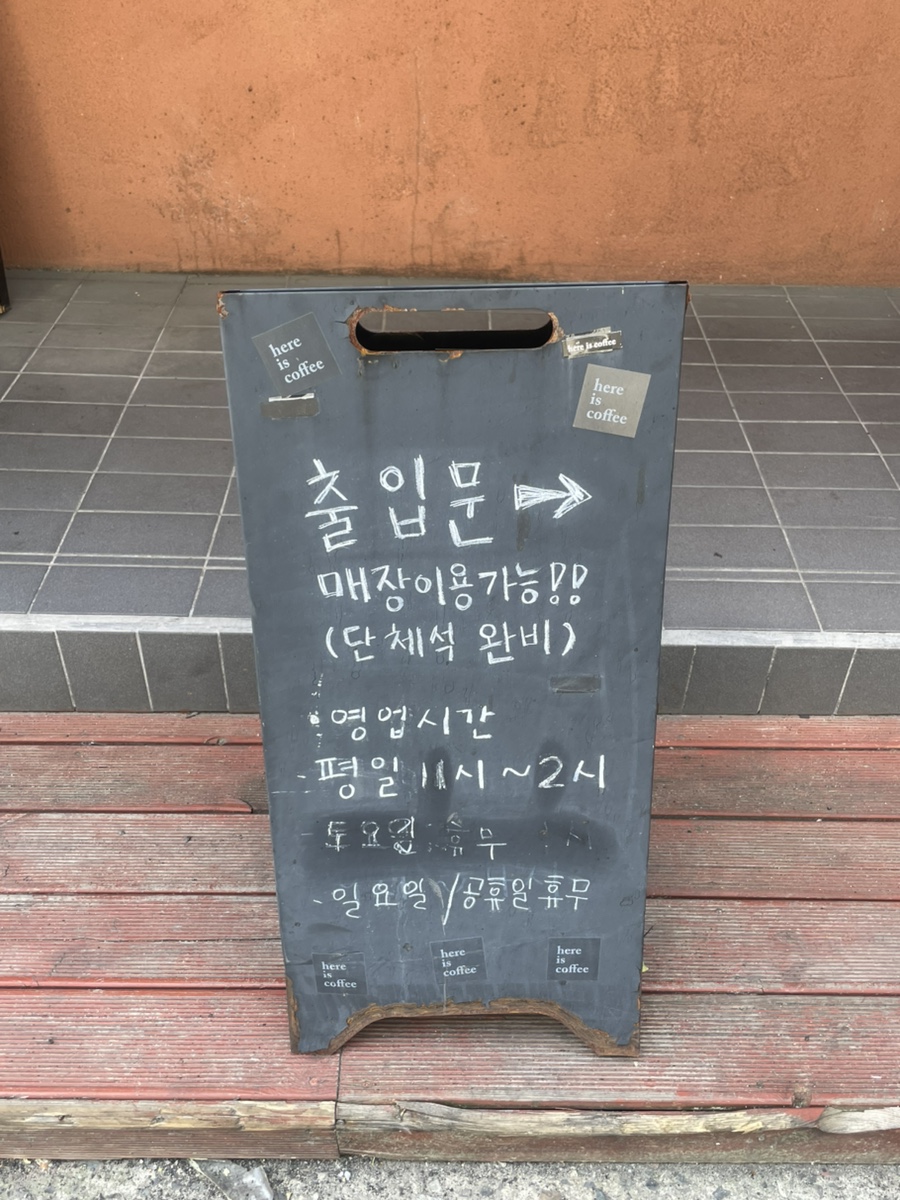 here
is
coffee
here is coffee
here
is
coffee
출입문 →
매장이용가능!!
(단체석 완비)
영업시간
평일 11시 ~ 2시
토요일 : 휴무
- 일요일 / 공휴일 휴무
here
is
coffee
here
is
coffee
here
is
coffee